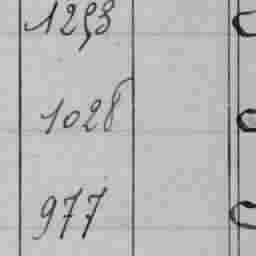 1293
1028
977